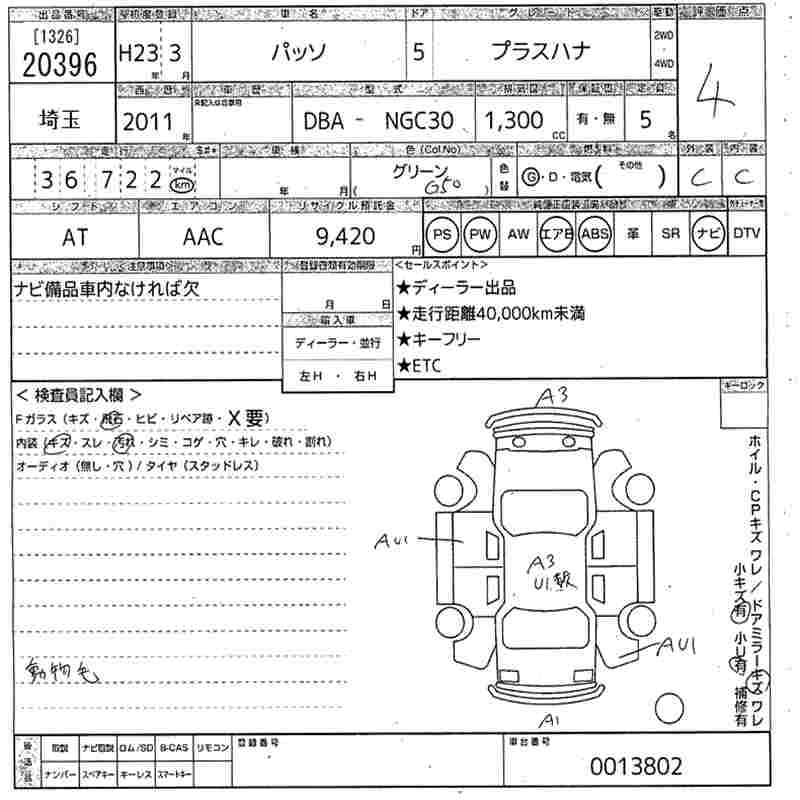 出品番号 初度登録 車名 ドア グレード 駆動 評価点
[1326]
20396 H23年 3月 パッソ 5 プラスハナ 2WD 4WD 4
西暦 車歴 型式 排気量 保証書 定員
未記入は自家用
埼玉 2011年 DBA - NGC30 1,300cc 有・無 5名
走行 車検 色(Col.No) 燃料 外装 内装
36722 マイル km 年 月 グリーン (G50) 色替 G・D・電気( その他 ) C C
シフト エアコン リサイクル預託金
AT AAC 9,420円 PS PW AW エアB ABS 革 SR ナビ DTV
注意事項 登録書類有効期限 <セールスポイント>
ナビ備品車内なければ欠 月 日 ★ディーラー出品
輸入車 ★走行距離40,000km未満
ディーラー・並行 ★キーフリー
左H・右H ★ETC
<検査員記入欄> キーロック
Fガラス(キズ・飛石・ヒビ・リペア跡・X要)
内装(キズ・スレ・汚れ・シミ・コゲ・穴・キレ・破れ・割れ)
オーディオ(無し・穴)/タイヤ(スタッドレス)
A3
AU1
A3
U1.数
AU1
A1
動物毛
ホイル・CPキズワレ/ドアミラーキズワレ
小キズ有 小U有 補修有
後送品 取説 ナビ取説 ロム/SD B-CAS リモコン 登録番号 車台番号
ナンバー スペアキー キーレス スマートキー 0013802